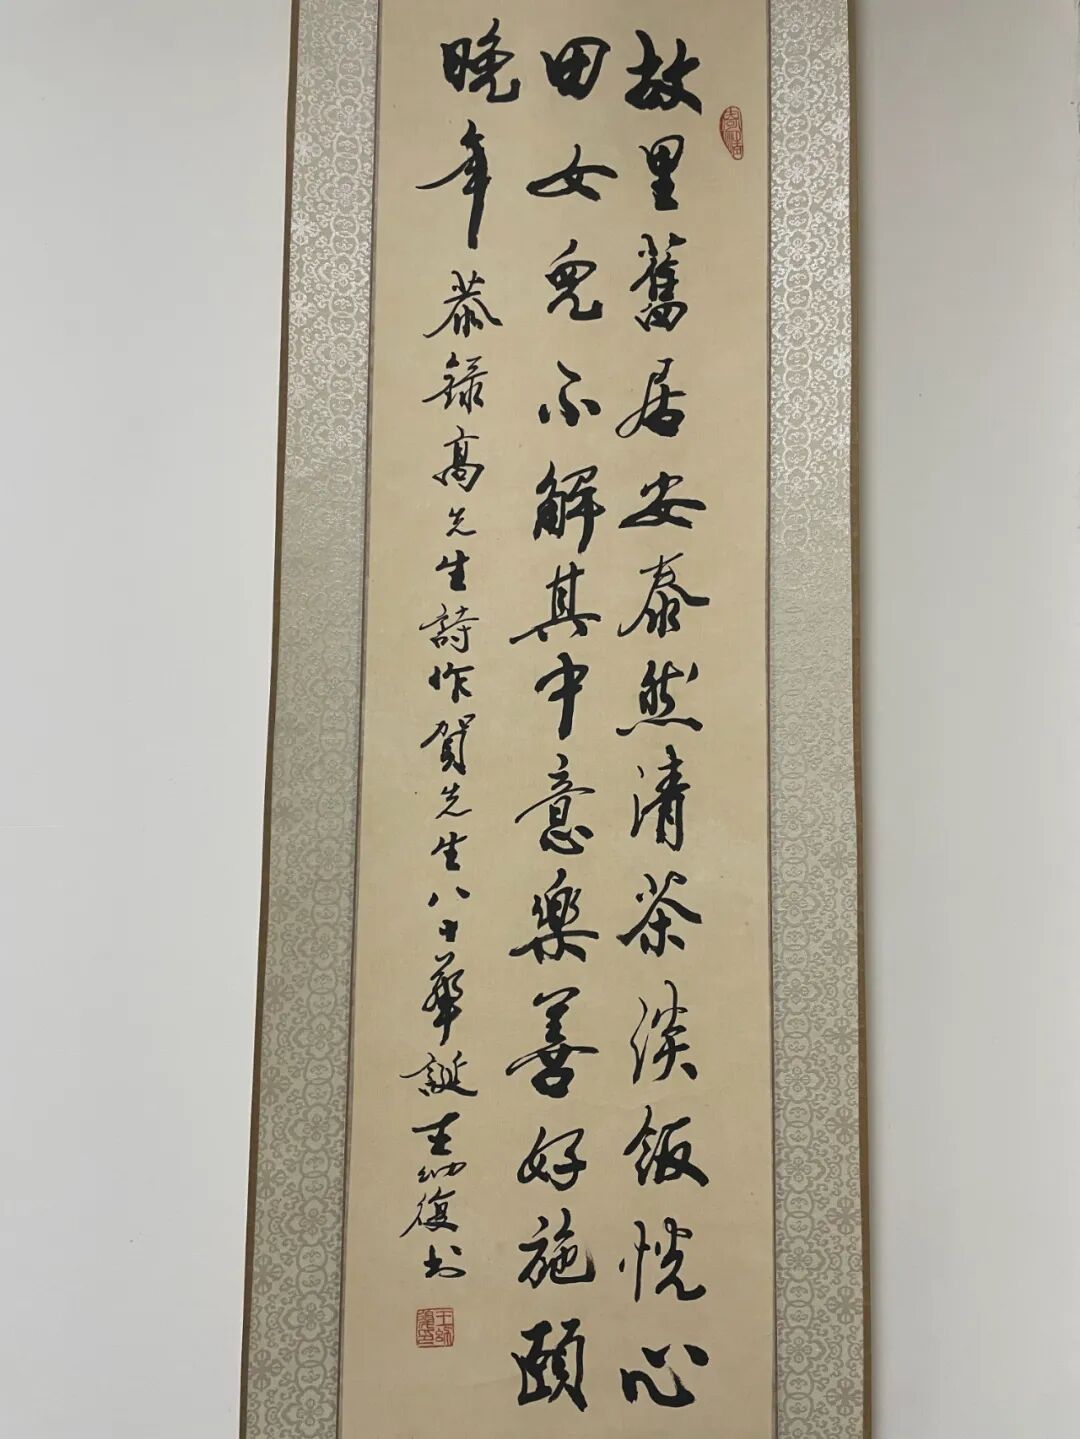 故里舊居安泰然清茶淡飯悦心
田女兒不解其中意樂善好施頤
晚年恭錄高先生詩作賀先生八十華誕王幼復书